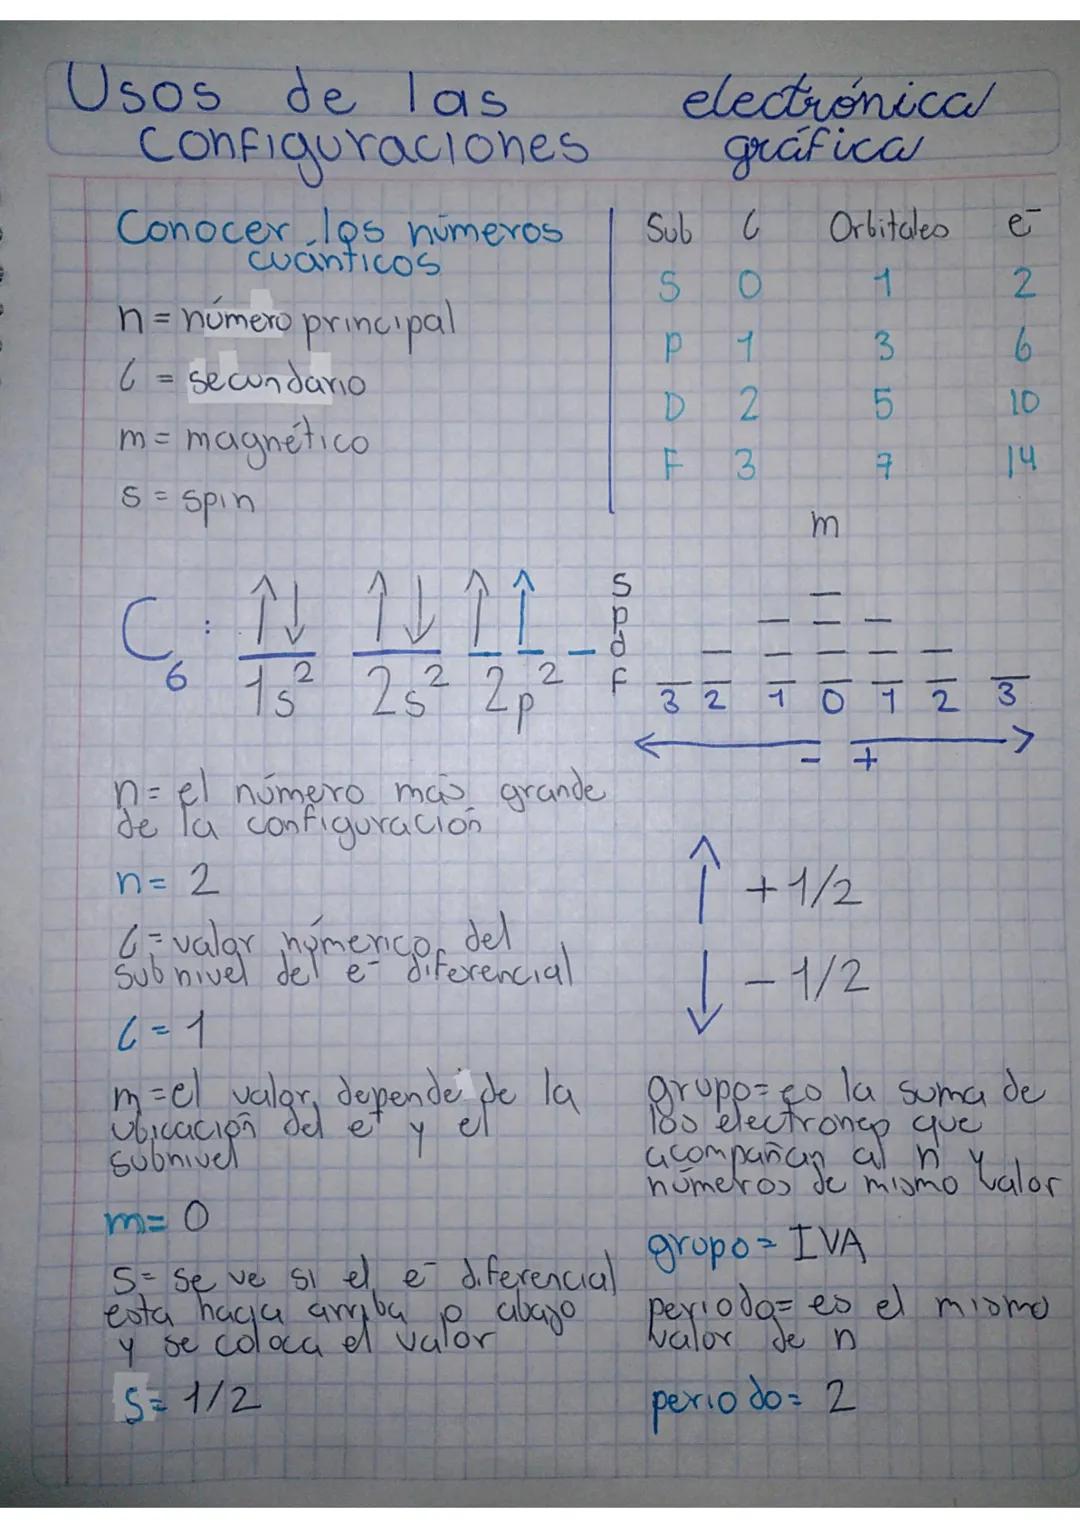 Usos de las
configuraciones
electrónica
gráfica
Conocer los números
cuánticos
n = número principal
l = secundario
m = magnético
s = spin
Sub l Orbitales e⁻
S 0 1 2
P 1 3 6
D 2 5 10
F 3 7 14
C₆ : ↑↓ ↑↓ ↑ ↑
1s² 2s² 2p²
m
s
p
d
f
3 2 1 0 1 2 3
← - + →
n= el número más grande
de la configuración
n= 2
l= valor númerico del
subnivel del e⁻ diferencial
l= 1
m= el valor, depende de la
ubicación del e⁻ y el
subnivel
m= 0
S= se ve si el e⁻ diferencial
esta hacia arriba o abajo
y se coloca el valor
S= 1/2
↑ +1/2
↓ - 1/2
grupo= es la suma de
los electrones que
acompañan al n y
números de mismo valor
grupo= IVA
periodo= es el mismo
valor de n
periodo= 2